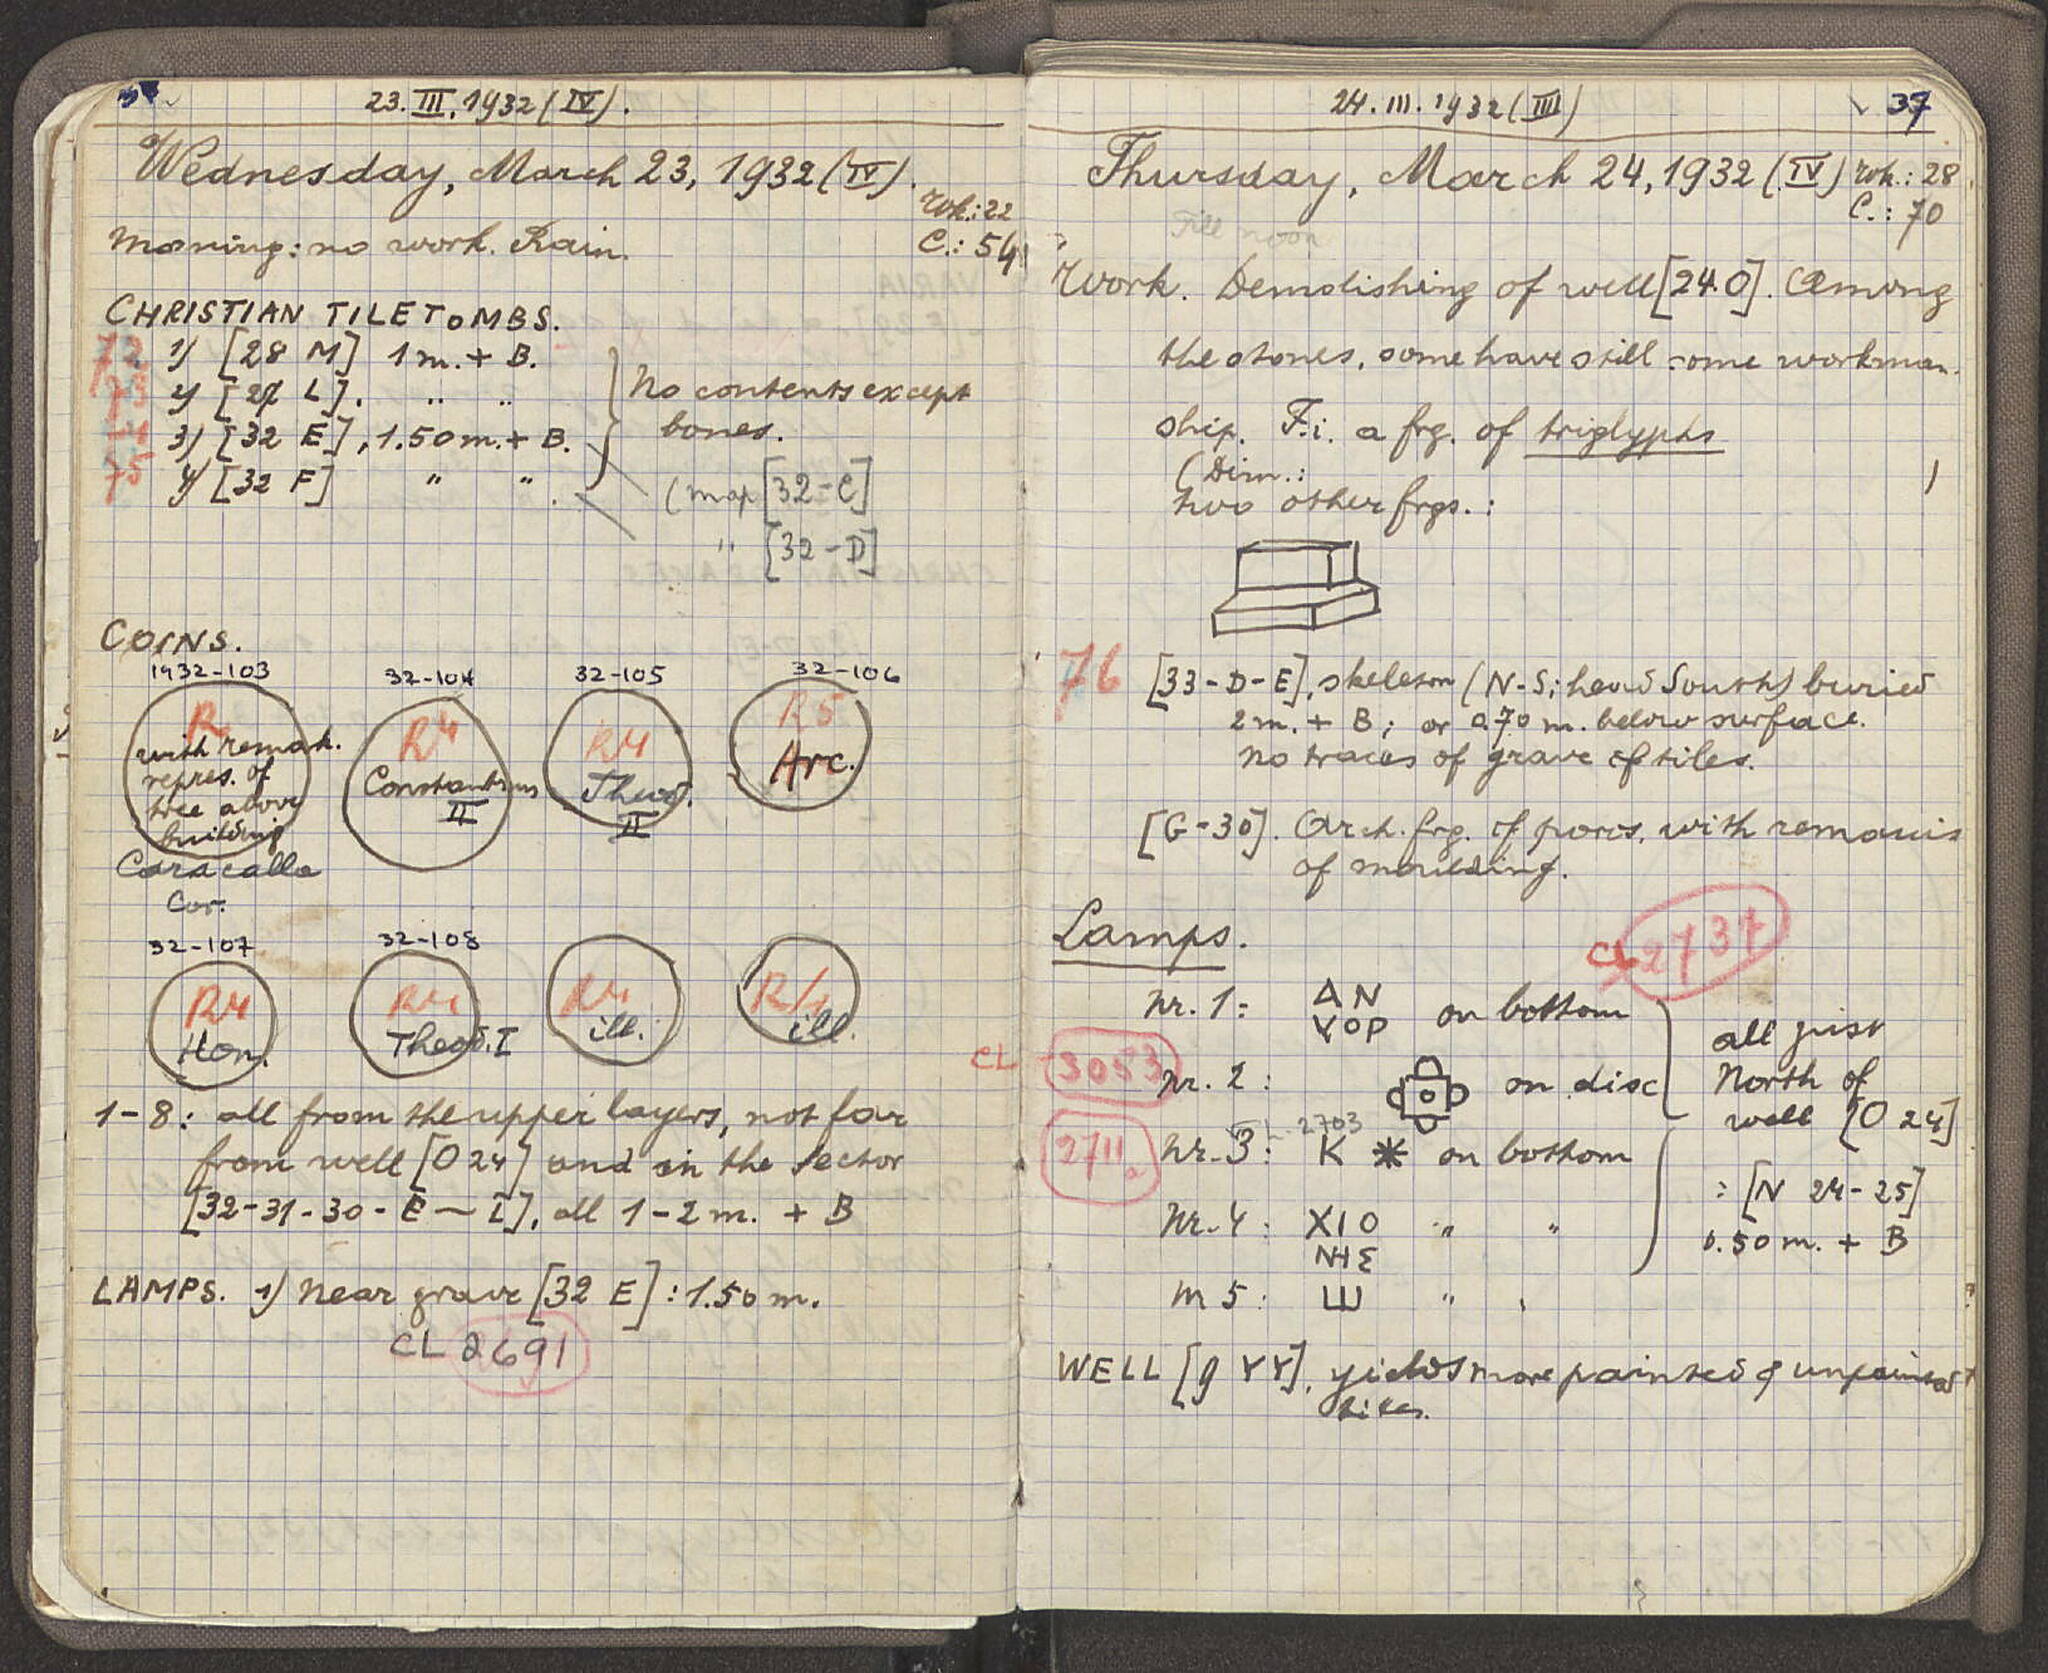 23.III.1932 (IV).
Wednesday, March 23, 1932 (IV).
Wk.: 22
C.: 54
Morning: no work. Rain.
CHRISTIAN TILE TOMBS.
72 1) [28 M] 1 m. + B.
73 2) [27 L]. " "
74 3) [32 E], 1.50 m. + B.
75 4) [32 F] " " .
No contents except
bones.
(map [32-C]
" [32-D]
COINS.
1932-103 32-104 32-105 32-106
R R4 R4 R5
with remark.
repres. of
tree above
building
Caracalla
Cor.
Constantius
II
Theod.
II
Arc.
32-107 32-108
R4 R4 R4 R4
Hon. Theod. I ill. ill.
1-8: all from the upper layers, not far
from well [O 24] and in the sector
[32-31-30-E-I], all 1-2 m. + B
LAMPS. 1) Near grave [32 E]: 1.50 m.
CL 2691
24.III.1932 (III)
37
Thursday, March 24, 1932 (IV)
Wk.: 28
C.: 70
Till noon
Work. Demolishing of well [24.O]. Among
the stones, some have still some workman-
ship. F.i. a frg. of triglyphs
(Dim.: )
two other frgs. :
76 [33-D-E], skeleton (N-S; head South) buried
2 m. + B; or 0.70 m. below surface.
No traces of grave of tiles.
[G-30]. Arch. frg. of poros, with remains
of moulding.
Lamps.
CL 2737
Nr. 1: ΔN
YOP on bottom
CL 3053 Nr. 2: on disc
all just
North of
well [O 24]
2703
2711a Nr. 3: K ✳ on bottom
Nr. 4: XIO " "
NHΣ
: [N 24-25]
0.50 m. + B
Nr 5: Ш "
WELL [9 YY], yields more painted & unpainted
tiles.